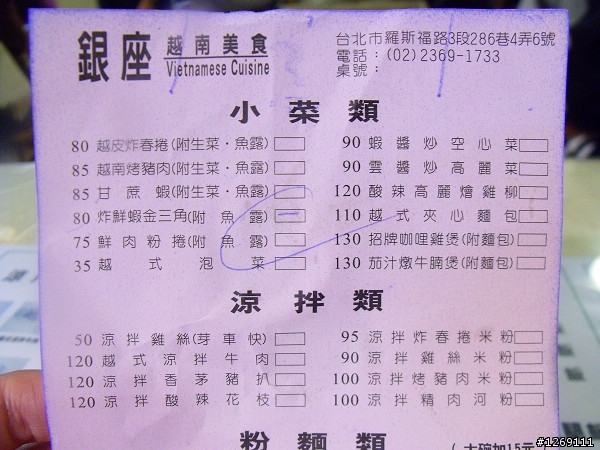 銀座 越南美食
Vietnamese Cuisine
台北市羅斯福路3段286巷4弄6號
電話：(02)2369-1733
桌號：
小菜類
80 越皮炸春捲(附生菜・魚露)
85 越南烤豬肉(附生菜・魚露)
85 甘蔗蝦(附生菜・魚露)
80 炸鮮蝦金三角(附魚露)
75 鮮肉粉捲(附魚露)
35 越式泡菜
90 蝦醬炒空心菜
90 雲醬炒高麗菜
120 酸辣高麗燴雞柳
110 越式夾心麵包
130 招牌咖哩雞煲(附麵包)
130 茄汁燉牛腩煲(附麵包)
涼拌類
50 涼拌雞絲(芽車快)
120 越式涼拌牛肉
120 涼拌香茅豬扒
120 涼拌酸辣花枝
95 涼拌炸春捲米粉
90 涼拌雞絲米粉
100 涼拌烤豬肉米粉
100 涼拌精肉河粉
粉麵類
(大碗加15元)
#1269111